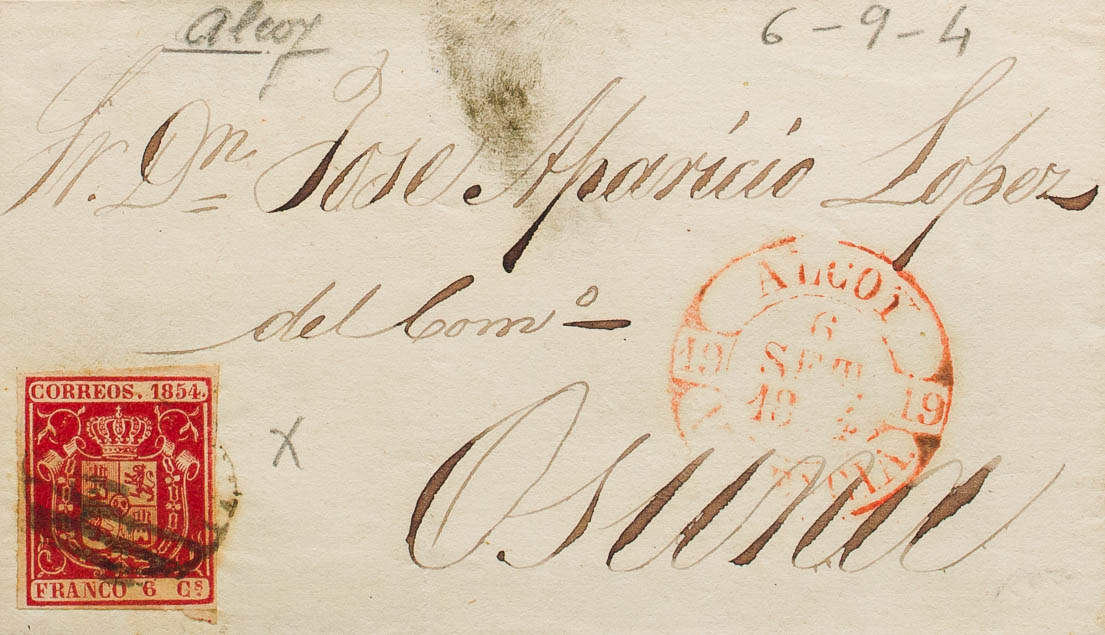 Alcoy
6-9-4
Sr. Dn. José Aparicio Lopez
del Comº
Osuna
ALCOY
6
SET.
18 4
19 19
CORREOS. 1854.
FRANCO 6 Cs
X